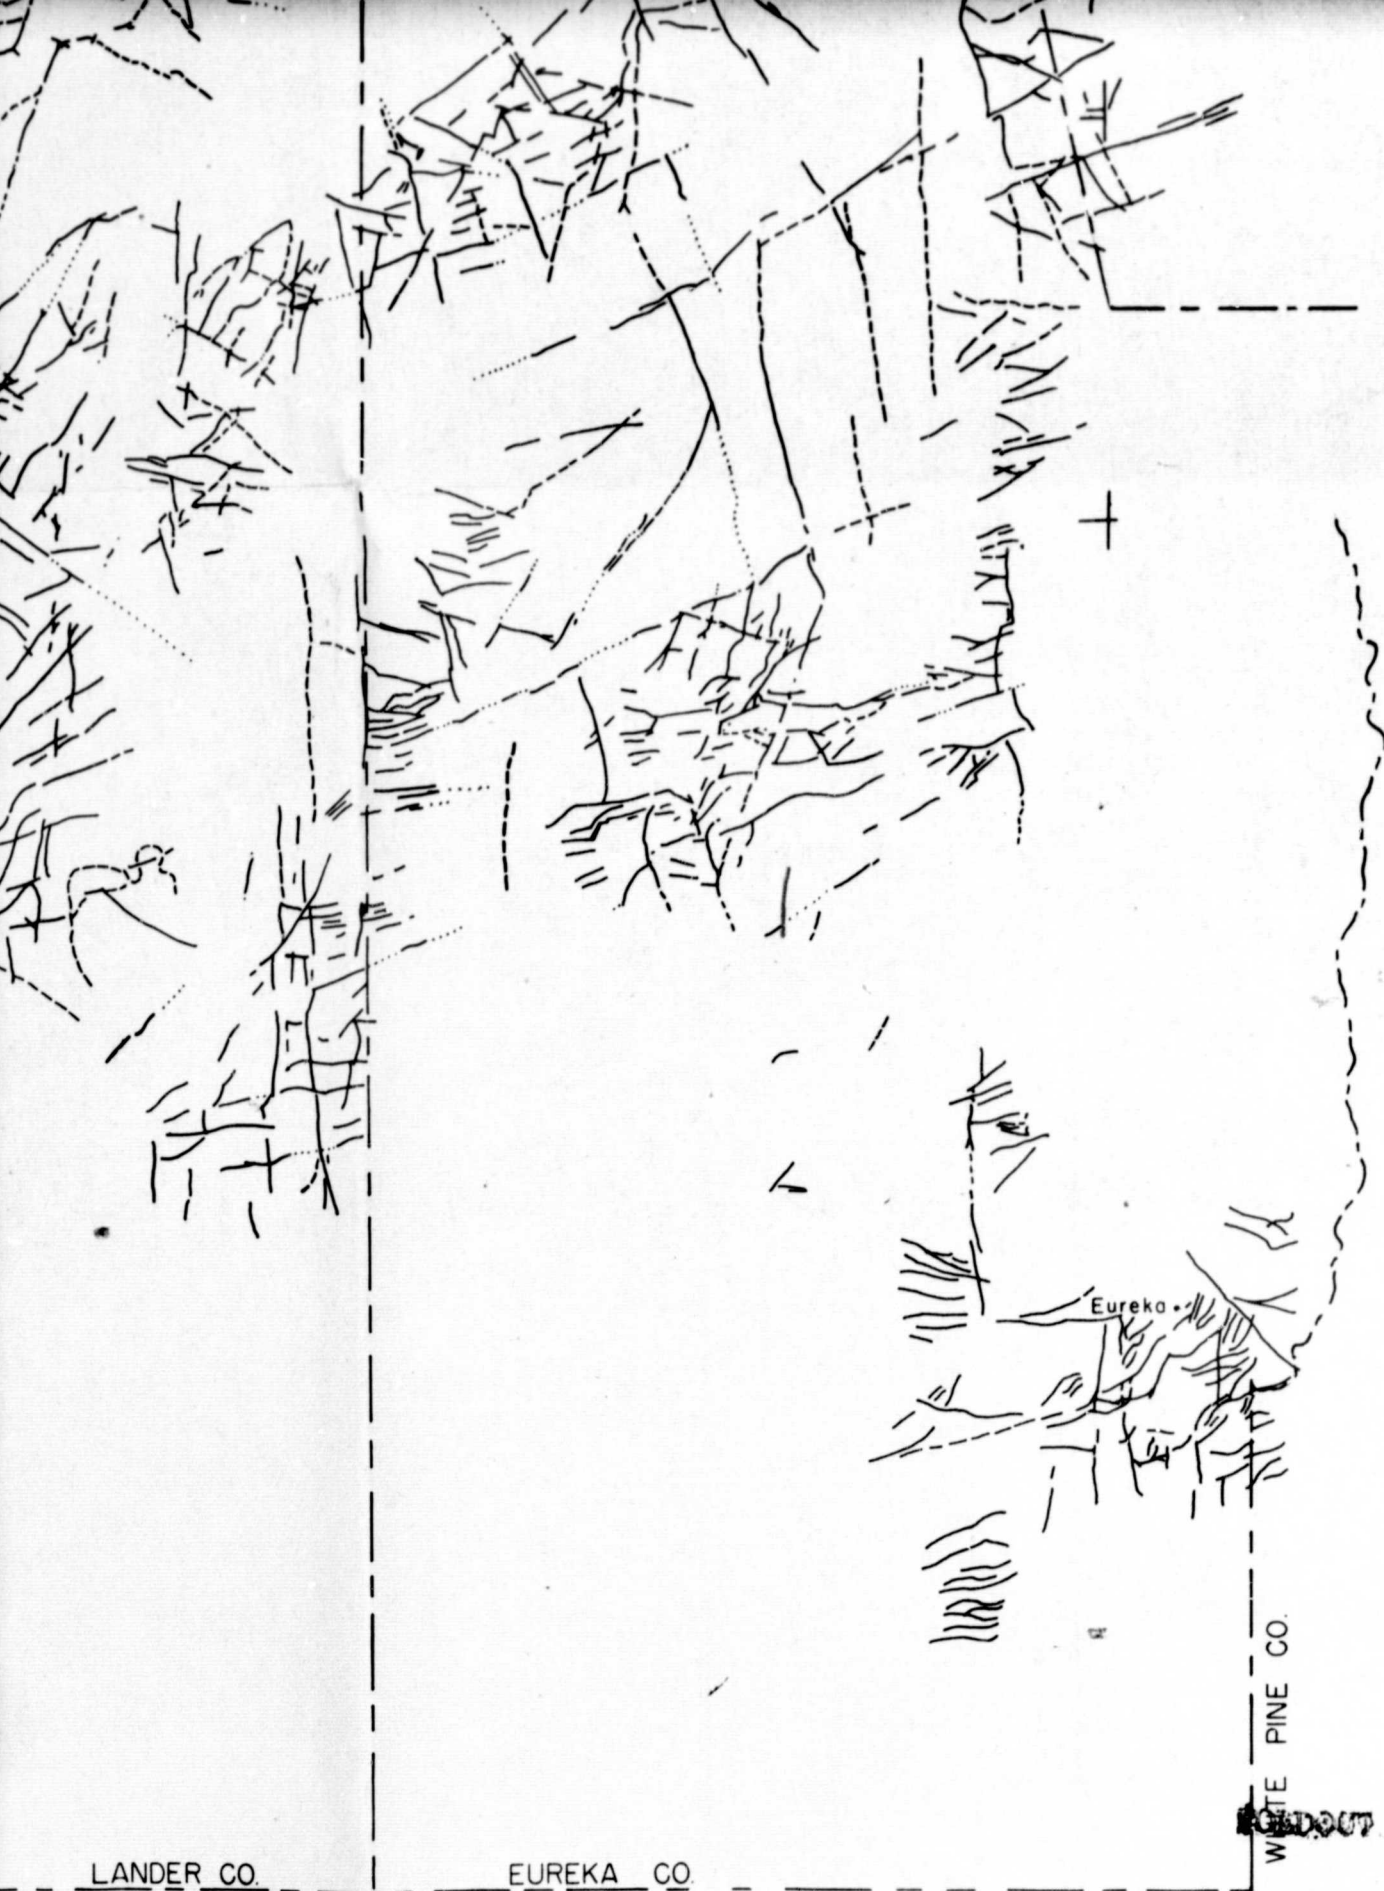 Eureka
WHITE PINE CO.
FOLDOUT
LANDER CO.
EUREKA CO.